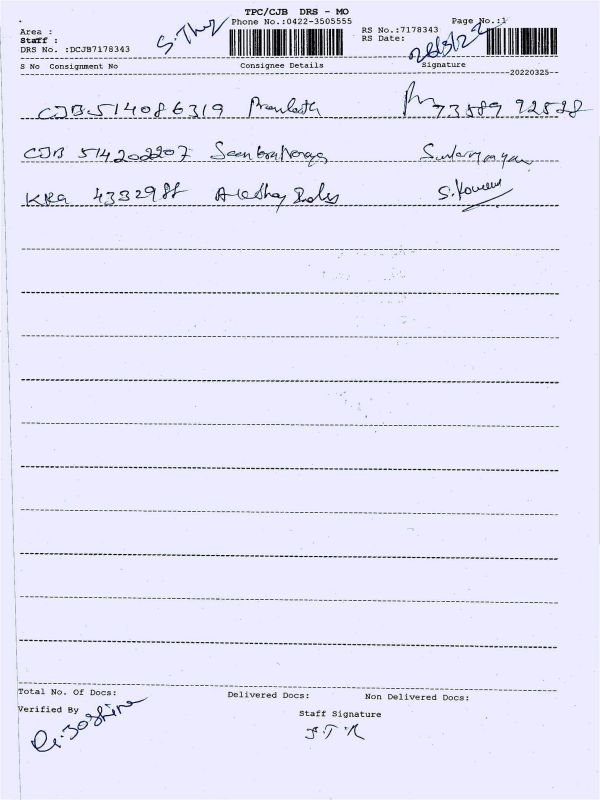 TPC/CJB DRS - MO
Phone No.:0422-3505555
Page No.:1
Area :
Staff :
DRS No. :DCJB7178343
RS No.:7178343
RS Date:
S No Consignment No Consignee Details Signature
20220325
CJB 514086319 73589 92528
CJB 514202207
KRG 4332988
S.Kumar
Total No. Of Docs: Delivered Docs: Non Delivered Docs:
Verified By
Staff Signature